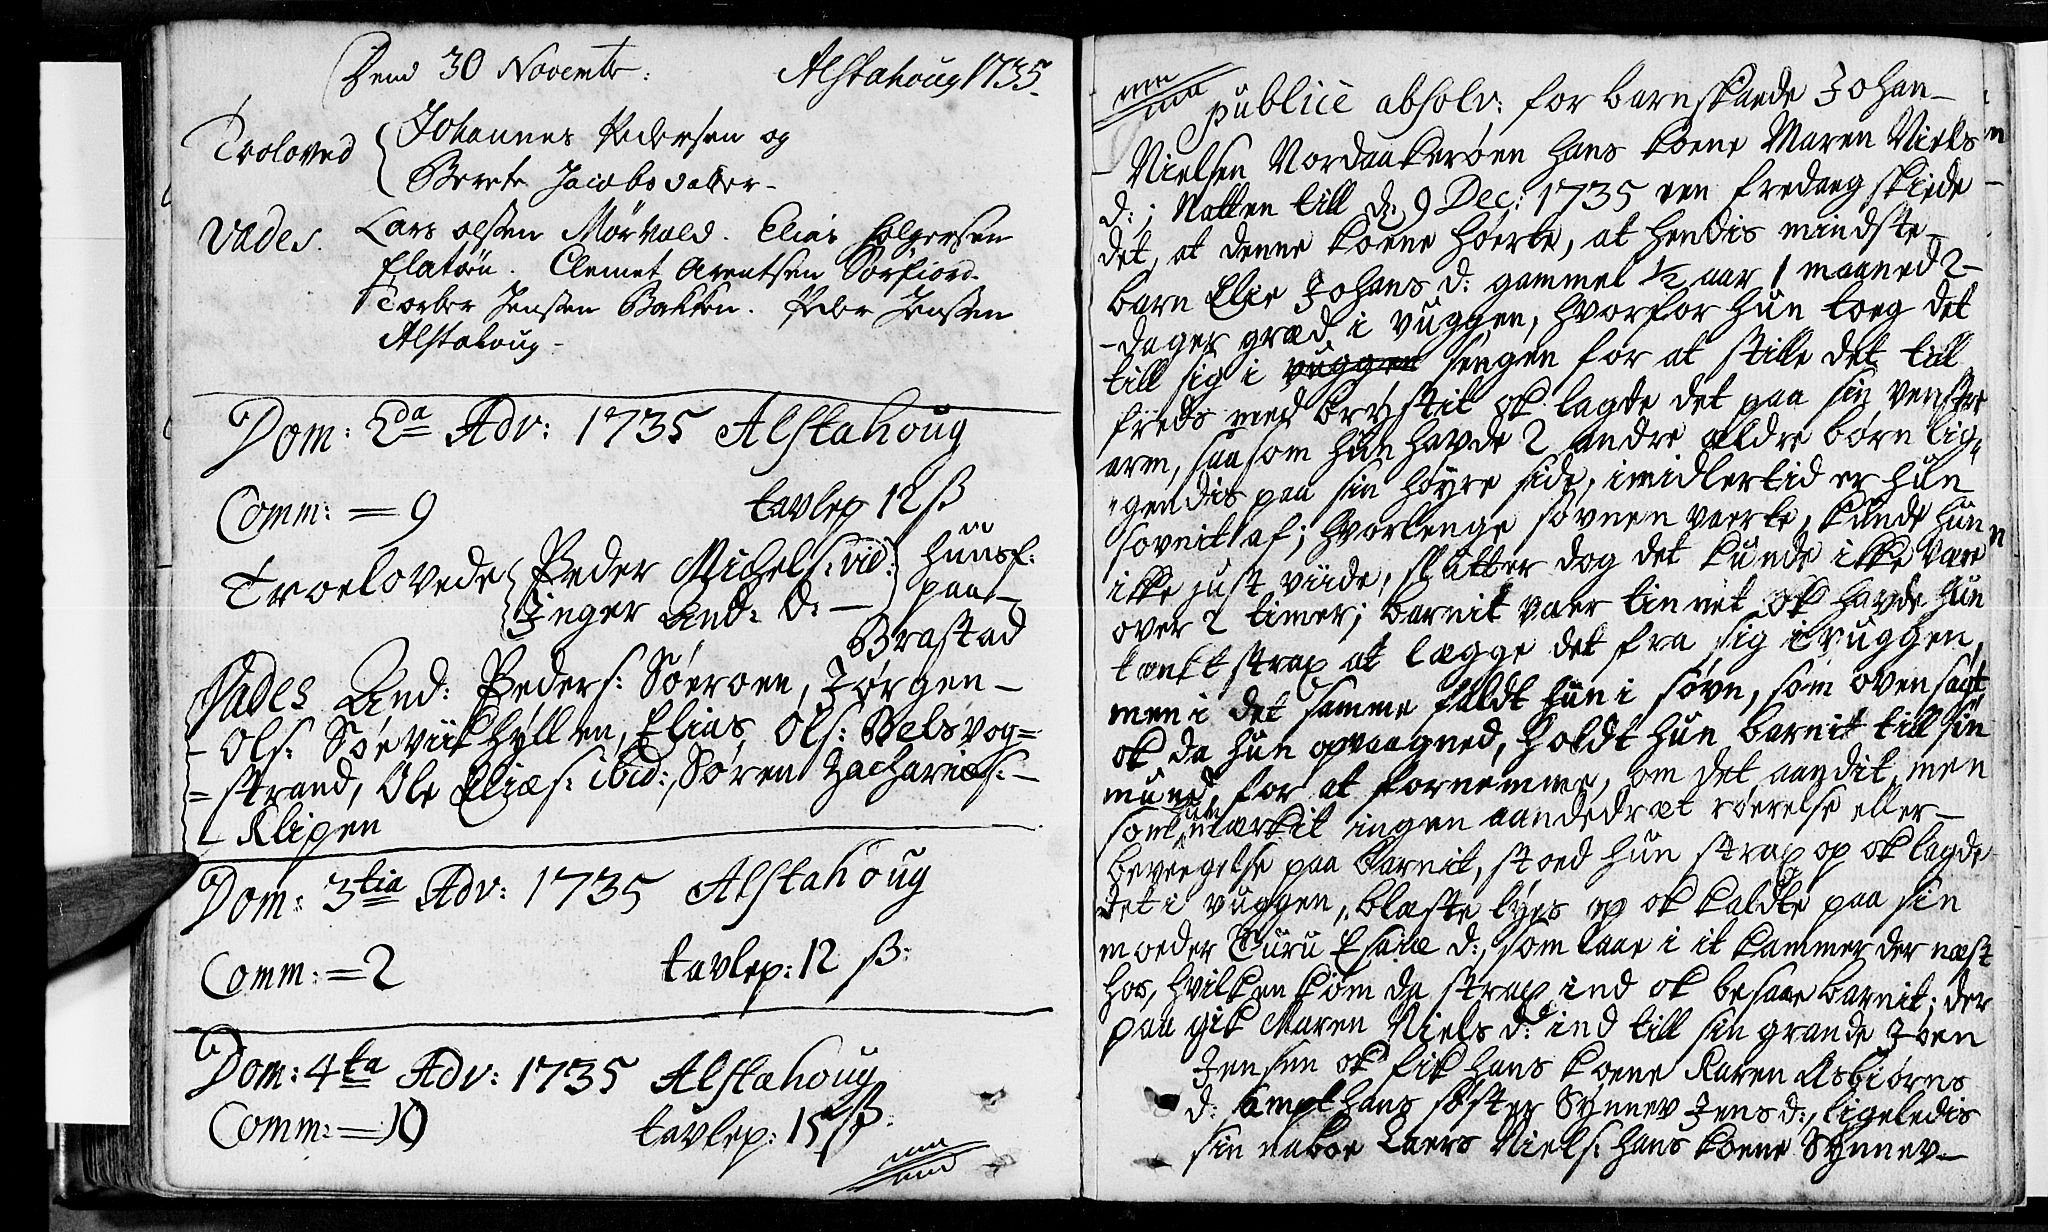 Dend 30 Novembr: Alstahoug 1735.
Troloved Johannes Pedersen og
Berete Jacobsdatter-
Vades. Lars olssen Mörvald. Elias Holgersen
Flatöen. Clemet Arentsen Sörfiord-
Torber Jenssen Bakken. Peder Jenssen
Alstahoug-
Dom: 2da Adv: 1735 Alstahoug
Comm: = 9 tavlep 12 ß
Troelovede Peder Michels: vid: huusf:
Inger And: d: — paa-
Brastad
Vades And: Peders: Söeroen, Jørgen-
-Ols: Søeviikhyllen, Elias Ols: Belsvog=
=strand, Ole Eliæs: ibid:, Søren Zachariæs:-
- Klipen
Dom: 3tia Adv: 1735 Alstahoug
Comm: = 2 tavlep: 12 ß:
Dom: 4ta Adv: 1735 Alstahoug
Comm: = 10 tavlep: 15 ß:
publicè absolv: for barnskaede Johan-
Nielsen Nordaakerøen hans koene Maren Niels
d: i Natten till d: 9 Dec: 1735 een fredaeg skiede
det, at denne koene hoerte, at hendis mindste-
barn Elie Johans d: gammel ½ aar 1 maaned 2-
-dager græd i vuggen, hvorfor hun toeg det
till sig i vuggen sengen for at stille det till
freds med brystit ok lagde det paa sin venstre
arm, saasom hun havde 2 andre ældre børn lig"
"gendis paa sin høyre side, imidlertid er hun
sovnit af; hvorlenge søvnen vaerte, kunde hun
ikke just viide, slutter dog det kunde ikke være
over 2 timer; barnit vaer tinnet ok havde hun
tænkt strax at lægge det fra sig i vuggen,
men i det samme faldt hun i søvn, som oven sagt,
ok da hun opvaagned, holdt hun barnit till sin
mund for at fornemme, om det aandit, men
som hun mærkit ingen aandedræt röerelse eller-
beveegelse paa barnit, stoed hun strax op ok lagde
det i vuggen, blæste lyys op ok kaldte paa sin
moeder Turu Esaiæ d:, som laae i it kammer der næst
hos, hvilken kom da strax ind ok besaae barnit; der
paa gik Maren Niels d: ind till sin grande Joen
Jensen ok fik hans koene Karen Asbiørns
d: sampt hans søster Synnev Jens d:, ligeledis
sin naboe Laers Niels: hans koene Synnev-